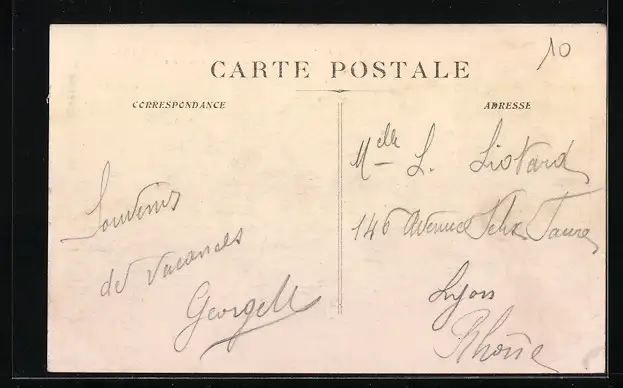 10
CARTE POSTALE
CORRESPONDANCE
ADRESSE
Souvenirs
de vacances
Melle L. Liotard
146 Avenue Felix Faure
Lyon
Rhône